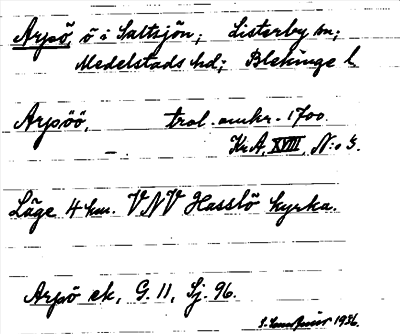 Arpö, ö i Saltsjön; Listerby sn;
Medelstads hd; Blekinge l.
Arpöö, trol. omkr. 1700.
Kr.A, XVIII, N:o 3.
Läge 4 km. VNV Hasslö kyrka.
Arpö ek, G. 11, Sj. 96.
1936.